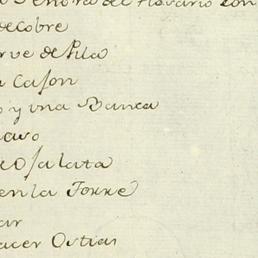 Señora del Rosario con
de cobre
rve de Pila
Cajon
y una Banca
ojalata
en la Torre
acer Ostias